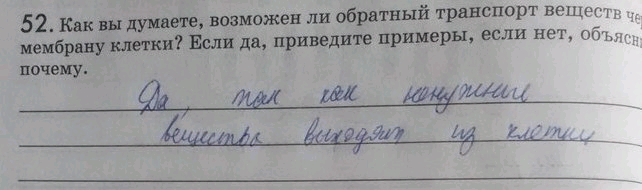 52. Как вы думаете, возможен ли обратный транспорт веществ че
мембрану клетки? Если да, приведите примеры, если нет, объясн
почему.
Да, так как ненужные
вещества выходят из клетки